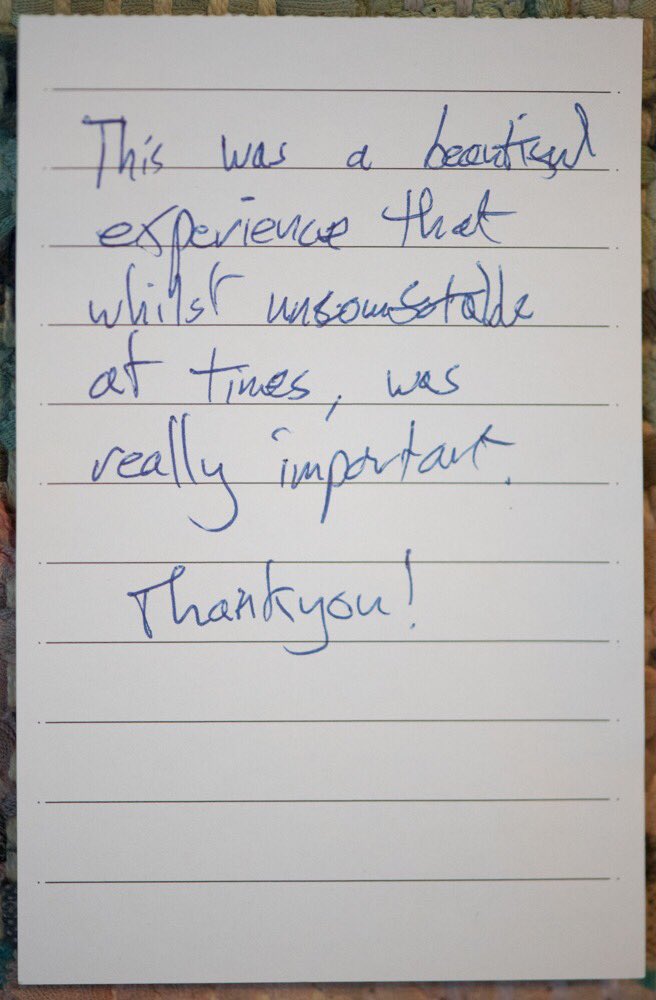 This was a beautiful
experience that
whilst uncomfortable
at times, was
really important.
Thankyou!